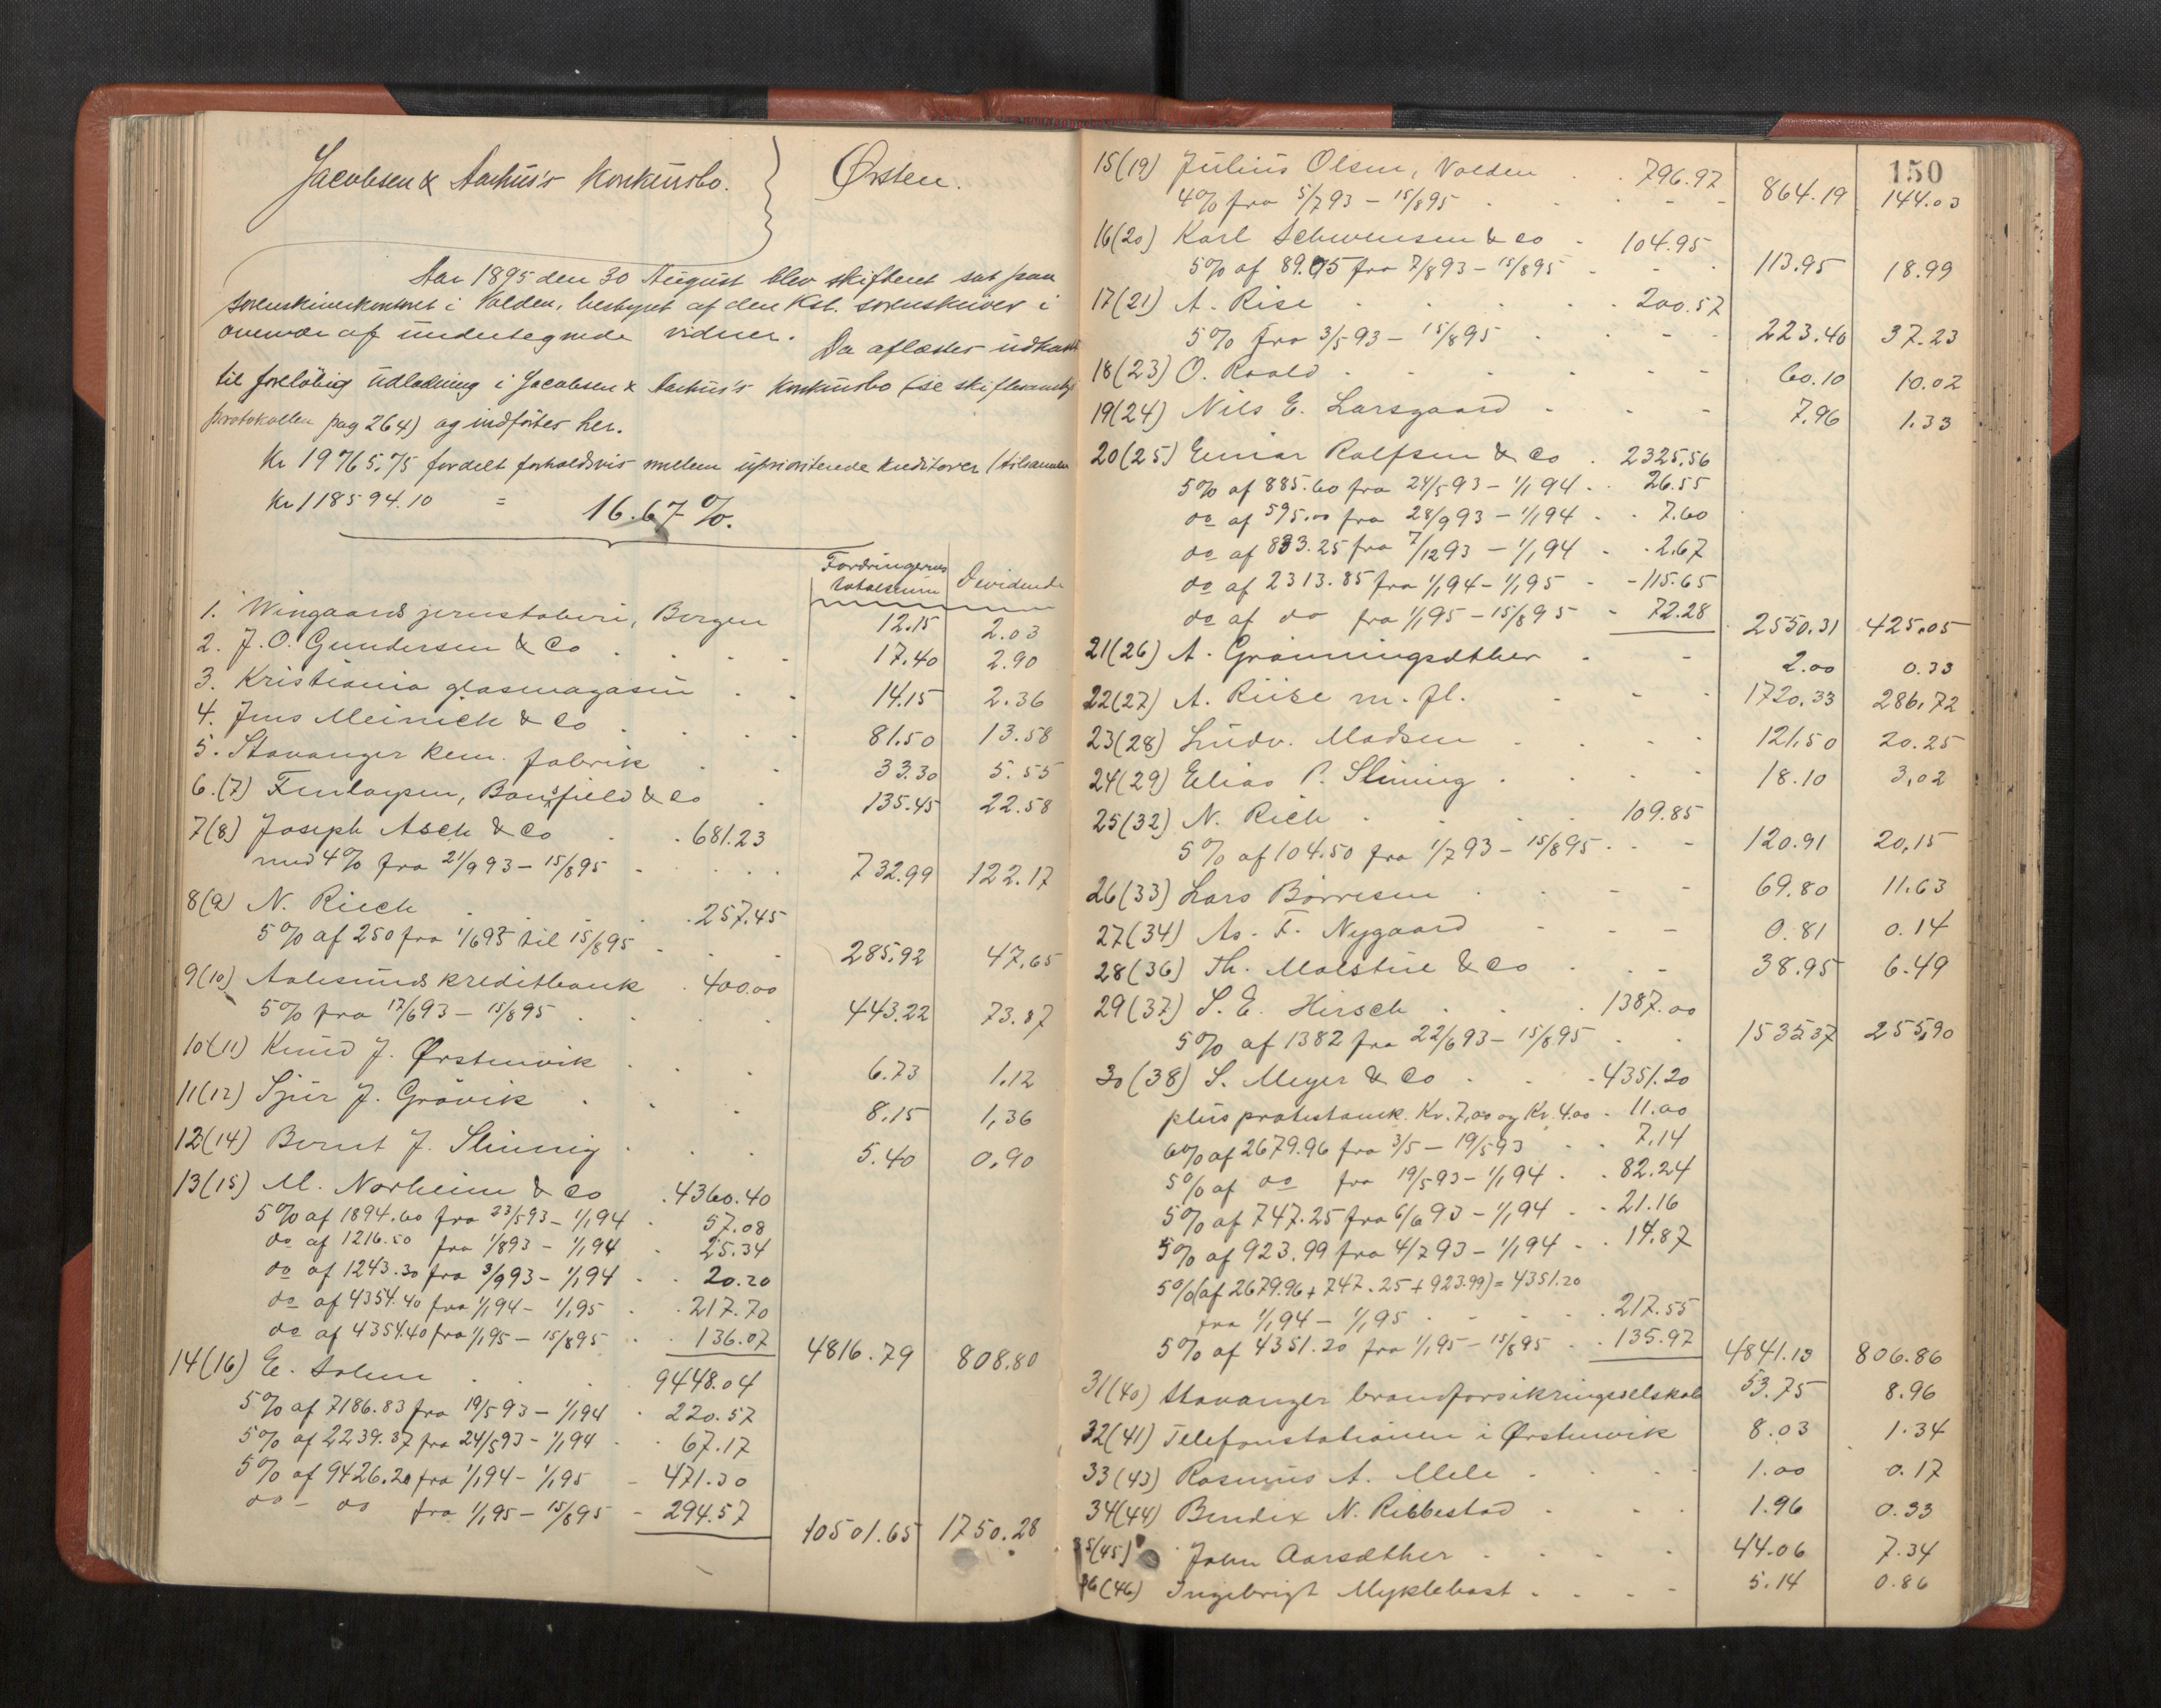 Jacobsen & Aarhus's Konkursbo. Ørsten.
Aar 1895 den 30 August blev skifteret sat paa
sorenskriverkontoret i Volden, bestyret af den Kst. sorenskriver i
overvær af undertegnede vidner. Da aflæstes udkast
til foreløbig udlodning i Jacobsen & Aarhus's Konkursbo (se skiftesamlings
protokollen pag 264) og indførtes her.
Kr 19765.75 fordelt forholdsvis mellem upriorite​rede kreditorer (tilsammen
Kr 118594.10 = 16.67%.
Fordringernes totalsum Dividende
1. Wingaards jernstøberi, Bergen 12.15 2.03
2. J. O. Gundersen & Co 17.40 2.90
3. Kristiania glasmagasin 14.15 2.36
4. Jens Meinich & Co 81.50 13.58
5. Stavanger kem. fabrik 33.30 5.55
6.(7) Finlaysen, Bousfield & Co 135.45 22.58
7(8) Joseph Asch & Co 681.23
med 4% fra 21/9 93 – 15/8 95 732.99 122.17
8(9) N. Riech 257.45
5% af 250 fra 1/6 93 til 15/8 95 285.92 47.65
9(10) Aalesunds kreditbank 400.00
5% fra 17/6 93 – 15/8 95 443.22 73.87
10(11) Knud J. Ørstenvik 6.73 1.12
11(12) Sjur J. Grøvik 8.15 1,36
12(14) Bernt J. Slinning 5.40 0,90
13(15) M. Norheim & Co 4360.40
5% af 1894.60 fra 23/5 93 – 1/1 94 57.08
do af 1216.50 fra 1/8 93 – 1/1 94 25.34
do af 1243.30 fra 3/9 93 – 1/1 94 20.20
do af 4354.40 fra 1/1 94 – 1/1 95 217.70
do af 4354.40 fra 1/1 95 – 15/8 95 136.07 4816.79 808.80
14(16) E. Solem 9448.04
5% af 7186.83 fra 19/5 93 – 1/1 94 220.57
5% af 2239.37 fra 24/5 93 – 1/1 94 67.17
5% af 9426.20 fra 1/1 94 – 1/1 95 471.30
do – do fra 1/1 95 – 15/8 95 294.57 10501.65 1750.28
150
15(19) Julius Olsen, Volden 796.92
4% fra 5/7 93 – 15/8 95 864.19 144.03
16(20) Karl Schwensen & Co 104.95
5% af 89.05 fra 7/8 93 – 15/8 95 113.95 18.99
17(21) A. Rise 200.57
5% fra 3/5 93 – 15/8 95 223.40 37.23
18(23) O. Roald 60.10 10.02
19(24) Nils E. Larsgaard 7.96 1.33
20(25) Einar Rolfsen & Co 2325.56
5% af 885.60 fra 24/5 93 – 1/1 94 26.55
do af 595.00 fra 28/9 93 – 1/1 94 7.60
do af 833.25 fra 7/12 93 – 1/1 94 2.67
do af 2313.85 fra 1/1 94 – 1/1 95 115.65
do af do fra 1/1 95 – 15/8 95 72.28 2550.31 425.05
21(26) A. Grønningsæther 2.00 0.33
22(27) A. Riise m. fl. 1720.33 286,72
23(28) Ludv. Madsen 121,50 20.25
24(29) Elias P. Slinning 18.10 3,02
25(32) N. Rich 109.85
5% af 104.50 fra 1/7 93 – 15/8 95 120.91 20,15
26(33) Lars Børresen 69.80 11.63
27(34) As. F. Nygaard 0.81 0.14
28(36) Th. Malstue & Co 38.95 6.49
29(37) S. E. Hirsch 1387.00
5% af 1382 fra 22/6 93 – 15/8 95 1535.37 255,90
30(38) S. Meyer & Co 4351.20
plus protestomk. Kr. 7,00 og Kr. 4.00 11.00
6% af 2679.96 fra 3/5 – 19/5 93 7.14
5% af do fra 19/5 93 – 1/1 94 82.24
5% af 747.25 fra 6/6 93 – 1/1 94 21.16
5% af 923.99 fra 4/7 93 – 1/1 94 14.87
5% (af 2679.96 + 747.25 + 923.99) = 4351.20
fra 1/1 94 – 1/1 95 217.55
5% af 4351.20 fra 1/1 95 – 15/8 95 135.97 4841.13 806.86
31(40) Stavanger brandforsikringsselskab 53.75 8.96
32(41) Telefonstationen i Ørstenvik 8.03 1.34
33(43) Rasmus A. Mele 1.00 0.17
34(44) Bendix N. Ribbestad 1.96 0.33
35(45) John Aarsæther 44.06 7.34
36(46) Ingebrigt Myklebost 5.14 0.86